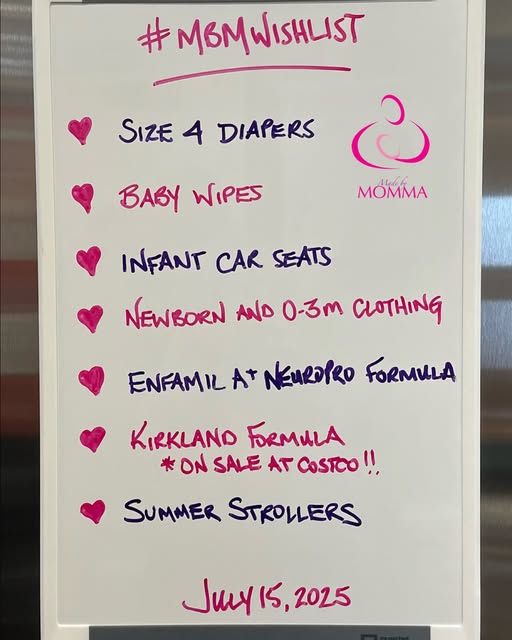 #MBMWISHLIST
SIZE 4 DIAPERS
Made by
MOMMA
BABY WIPES
INFANT CAR SEATS
NEWBORN AND 0-3M CLOTHING
ENFAMIL A+ NEUROPRO FORMULA
KIRKLAND FORMULA
*ON SALE AT COSTCO!!
SUMMER STROLLERS
JULY 15, 2025